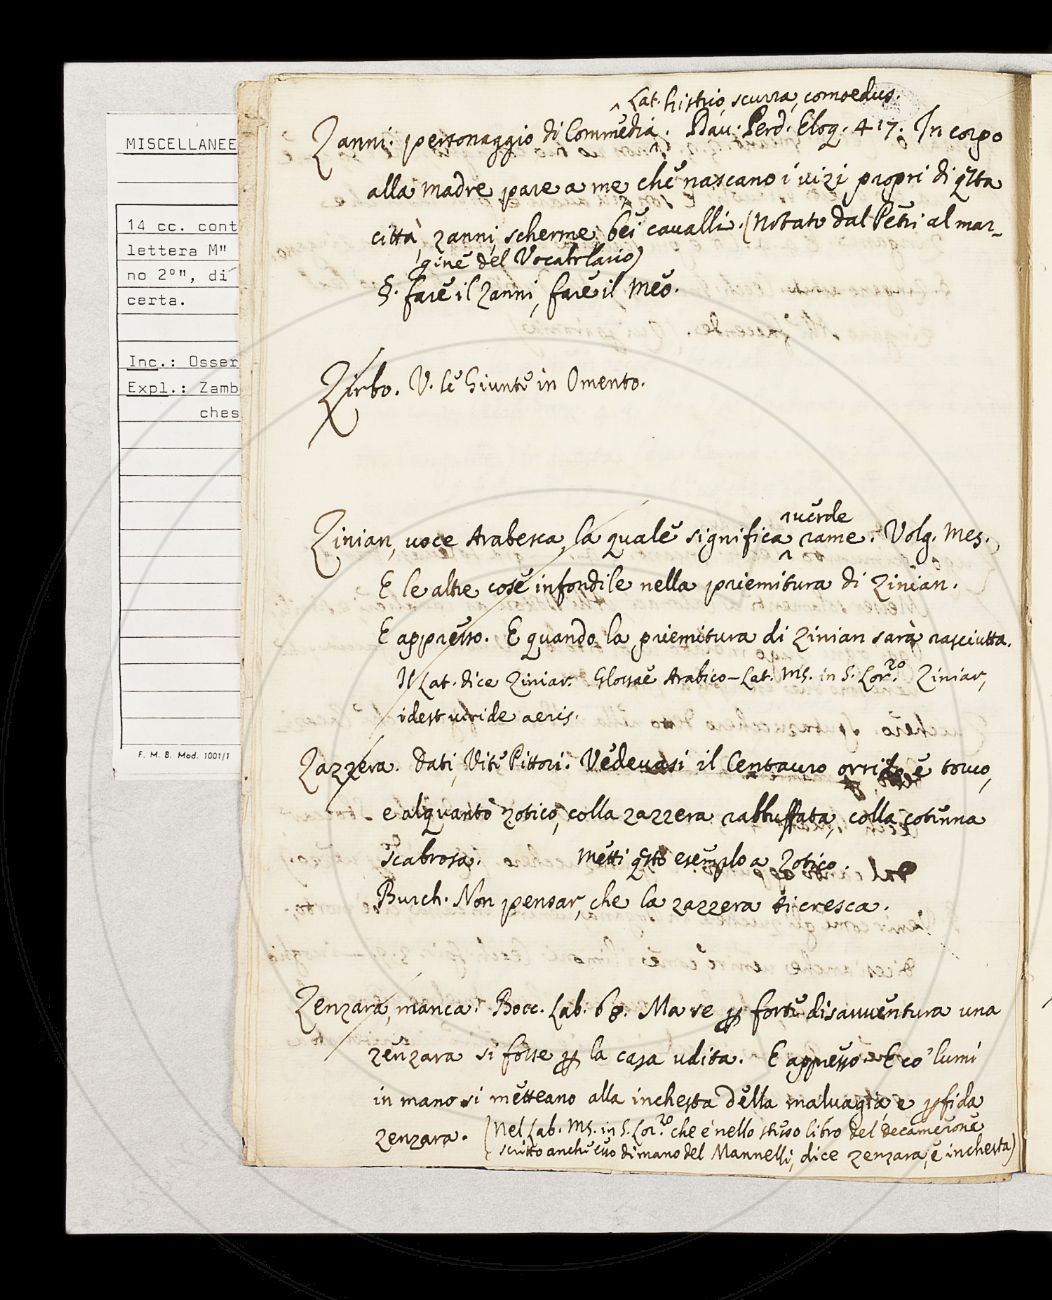 MISCELLANEE
14 cc. cont
lettera M"
no 2°", di
certa.
Inc.: Osser
Expl.: Zamb
ches
F. M. B. Mod. 1001/1
Lat. histrio, scurra, comoedus.
Zanni: personaggio di Commedia. Dav. Perd. Eloq. 417. In corpo
alla madre pare a me, che nascano i vizi propri di qsta
città, zanni, scherme, bei cavalli. (Notato dal Petri al mar-
gine del Vocabolario)
§. fare il Zanni, fare il Meo.
Zirbo. V. le Giunte in Omento.
Zinian, voce Arabesca, la quale significa verde rame. Volg. Mes.
E le altre cose infondile nella priemitura di Zinian.
E appresso. E quando la priemitura di Zinian sarà rasciutta.
Il Lat. dice Ziniar. Glossae Arabico-Lat. MS. in S. Lor.zo Ziniar,
idest viride aeris.
Zazzera. Dati, Vite Pittori. Vedevasi il Centauro orrido e torvo,
e alquanto zotico, colla zazzera rabbuffata, colla cotenna
scabrosa. Metti qsto esemplo a Zotico.
Burch. Non pensar, che la zazzera ti cresca.
Zenzara, manca. Bocc. Lab. 68. Ma se p forte disavventura una
zenzara si fosse p la casa udita. E appresso. E co' lumi
in mano si metteano alla inchesta della malvagia e pfida
zenzara. (Nel Lab. MS. in S. Lor.zo che è nello stesso libro del decamerone
scritto anch'esso di mano del Mannelli, dice zenzara, e inchesta)